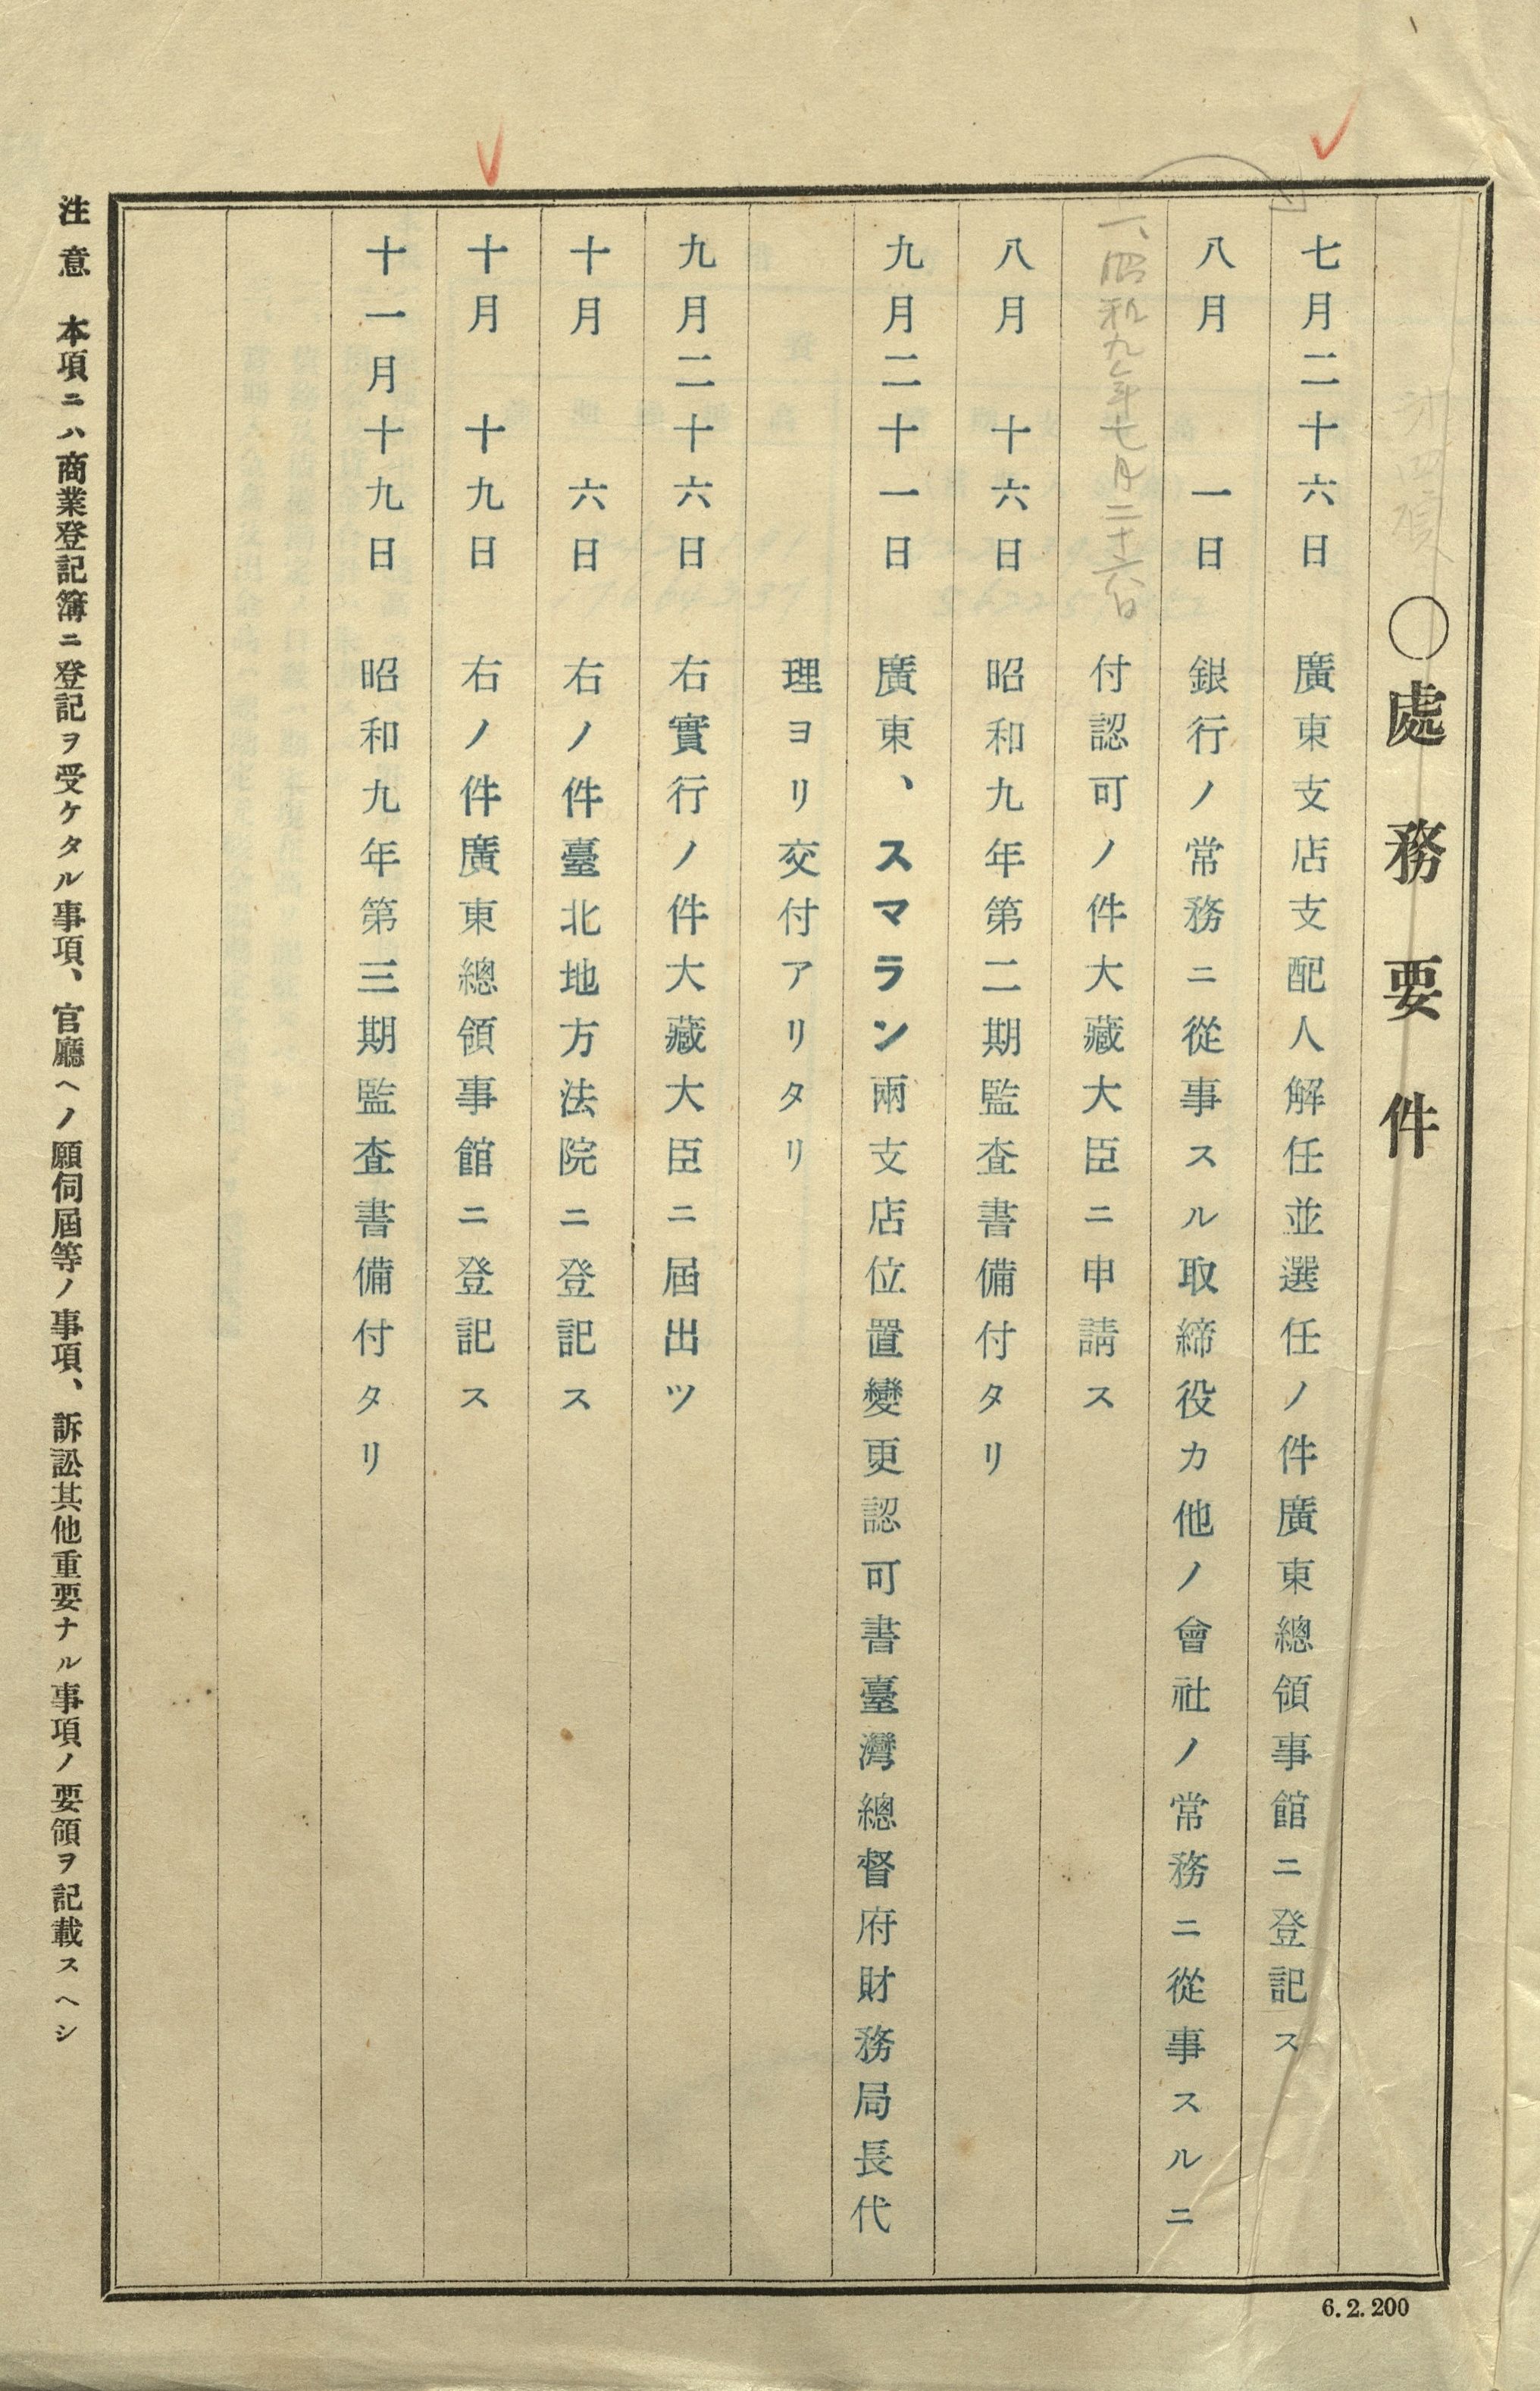 〇處務要件
七月二十六日 廣東支店支配人解任並選任ノ件廣東總領事館ニ登記ス
八月 一日 銀行ノ常務ニ從事スル取締役カ他ノ會社ノ常務ニ從事スルニ
付認可ノ件大藏大臣ニ申請ス
一、昭和九年七月二十六日
八月 十六日 昭和九年第二期監査書備付タリ
九月二十一日 廣東、スマラン兩支店位置變更認可書臺灣總督府財務局長代
理ヨリ交付アリタリ
九月二十六日 右實行ノ件大藏大臣ニ屆出ツ
十月 六日 右ノ件臺北地方法院ニ登記ス
十月 十九日 右ノ件廣東總領事館ニ登記ス
十一月十九日 昭和九年第三期監査書備付タリ
注意 本項ニハ商業登記簿ニ登記ヲ受ケタル事項、官廳ヘノ願伺屆等ノ事項、訴訟其他重要ナル事項ノ要領ヲ記載スヘシ
6.2.200